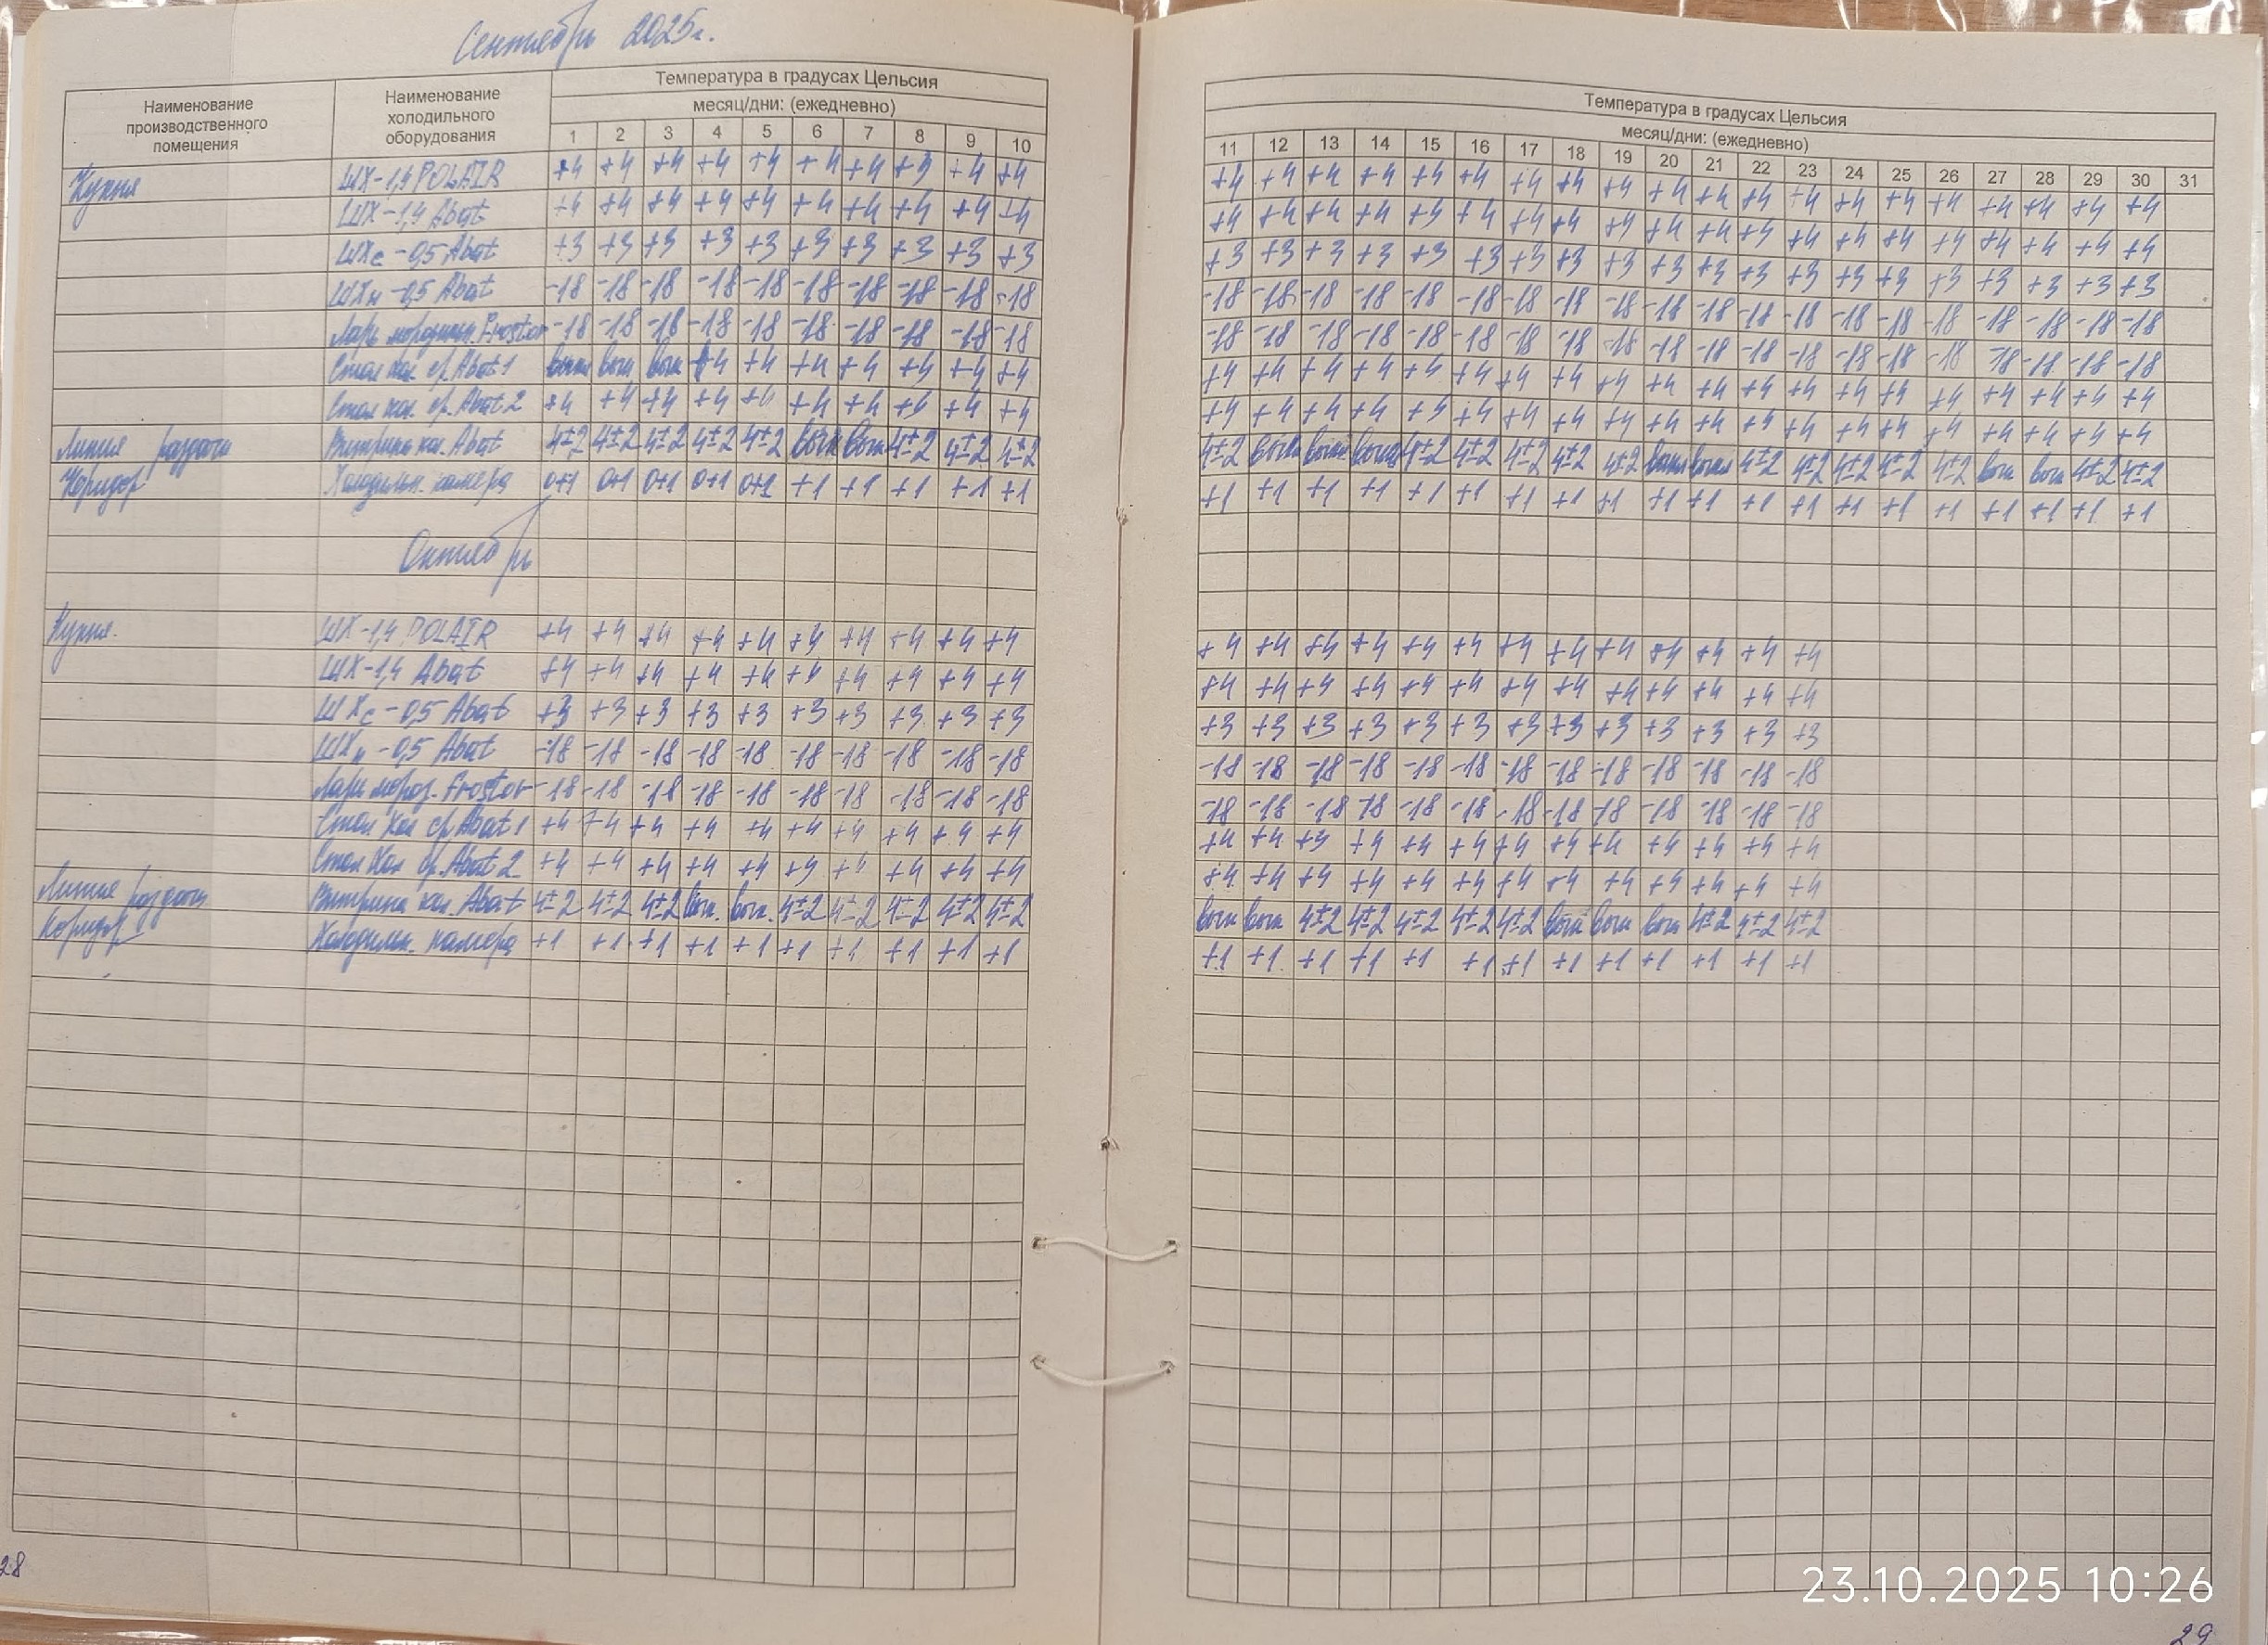 Сентябрь 2025г.
Наименование производственного помещения Наименование холодильного оборудования Температура в градусах Цельсия
месяц/дни: (ежедневно)
1 2 3 4 5 6 7 8 9 10
Кухня ШХ-1,4 POLAIR +4 +4 +4 +4 +4 +4 +4 +4 +4 +4
ШХ-1,4 Abat +4 +4 +4 +4 +4 +4 +4 +4 +4 +4
ШХс-0,5 Abat +3 +3 +3 +3 +3 +3 +3 +3 +3 +3
ШХн-0,5 Abat -18 -18 -18 -18 -18 -18 -18 -18 -18 -18
Ларь морозильн. Frostor -18 -18 -18 -18 -18 -18 -18 -18 -18 -18
Стол хол. ср. Abat 1 +4 +4 +4 +4 +4 +4 +4
Стол хол. ср. Abat 2 +4 +4 +4 +4 +4 +4 +4 +4 +4 +4
Линия раздачи Витрина хол. Abat 4±2 4±2 4±2 4±2 4±2 4±2 4±2 4±2
Коридор Холодильн. камера 0+1 0+1 0+1 0+1 0+1 +1 +1 +1 +1 +1
Октябрь
Кухня ШХ-1,4 POLAIR +4 +4 +4 +4 +4 +4 +4 +4 +4 +4
ШХ-1,4 Abat +4 +4 +4 +4 +4 +4 +4 +4 +4 +4
ШХс-0,5 Abat +3 +3 +3 +3 +3 +3 +3 +3 +3 +3
ШХн-0,5 Abat -18 -18 -18 -18 -18 -18 -18 -18 -18 -18
Ларь мороз. Frostor -18 -18 -18 -18 -18 -18 -18 -18 -18 -18
Стол хол ср Abat 1 +4 +4 +4 +4 +4 +4 +4 +4 +4 +4
Стол хол ср. Abat 2 +4 +4 +4 +4 +4 +4 +4 +4 +4 +4
Линия раздачи Витрина хол. Abat 4±2 4±2 4±2 4±2 4±2 4±2 4±2 4±2
Коридор Холодильн. камера +1 +1 +1 +1 +1 +1 +1 +1 +1 +1
28
Температура в градусах Цельсия
месяц/дни: (ежедневно)
11 12 13 14 15 16 17 18 19 20 21 22 23 24 25 26 27 28 29 30 31
+4 +4 +4 +4 +4 +4 +4 +4 +4 +4 +4 +4 +4 +4 +4 +4 +4 +4 +4 +4
+4 +4 +4 +4 +4 +4 +4 +4 +4 +4 +4 +4 +4 +4 +4 +4 +4 +4 +4 +4
+3 +3 +3 +3 +3 +3 +3 +3 +3 +3 +3 +3 +3 +3 +3 +3 +3 +3 +3 +3
-18 -18 -18 -18 -18 -18 -18 -18 -18 -18 -18 -18 -18 -18 -18 -18 -18 -18 -18 -18
-18 -18 -18 -18 -18 -18 -18 -18 -18 -18 -18 -18 -18 -18 -18 -18 -18 -18 -18 -18
+4 +4 +4 +4 +4 +4 +4 +4 +4 +4 +4 +4 +4 +4 +4 +4 +4 +4 +4 +4
+4 +4 +4 +4 +4 +4 +4 +4 +4 +4 +4 +4 +4 +4 +4 +4 +4 +4 +4 +4
4±2 4±2 4±2 4±2 4±2 4±2 4±2 4±2 4±2 4±2 4±2 4±2 4±2
+1 +1 +1 +1 +1 +1 +1 +1 +1 +1 +1 +1 +1 +1 +1 +1 +1 +1 +1 +1
+4 +4 +4 +4 +4 +4 +4 +4 +4 +4 +4 +4 +4
+4 +4 +4 +4 +4 +4 +4 +4 +4 +4 +4 +4 +4
+3 +3 +3 +3 +3 +3 +3 +3 +3 +3 +3 +3 +3
-18 -18 -18 -18 -18 -18 -18 -18 -18 -18 -18 -18 -18
-18 -18 -18 -18 -18 -18 -18 -18 -18 -18 -18 -18 -18
+4 +4 +4 +4 +4 +4 +4 +4 +4 +4 +4 +4 +4
+4 +4 +4 +4 +4 +4 +4 +4 +4 +4 +4 +4 +4
4±2 4±2 4±2 4±2 4±2 4±2 4±2 4±2
+1 +1 +1 +1 +1 +1 +1 +1 +1 +1 +1 +1 +1
23.10.2025 10:26
29